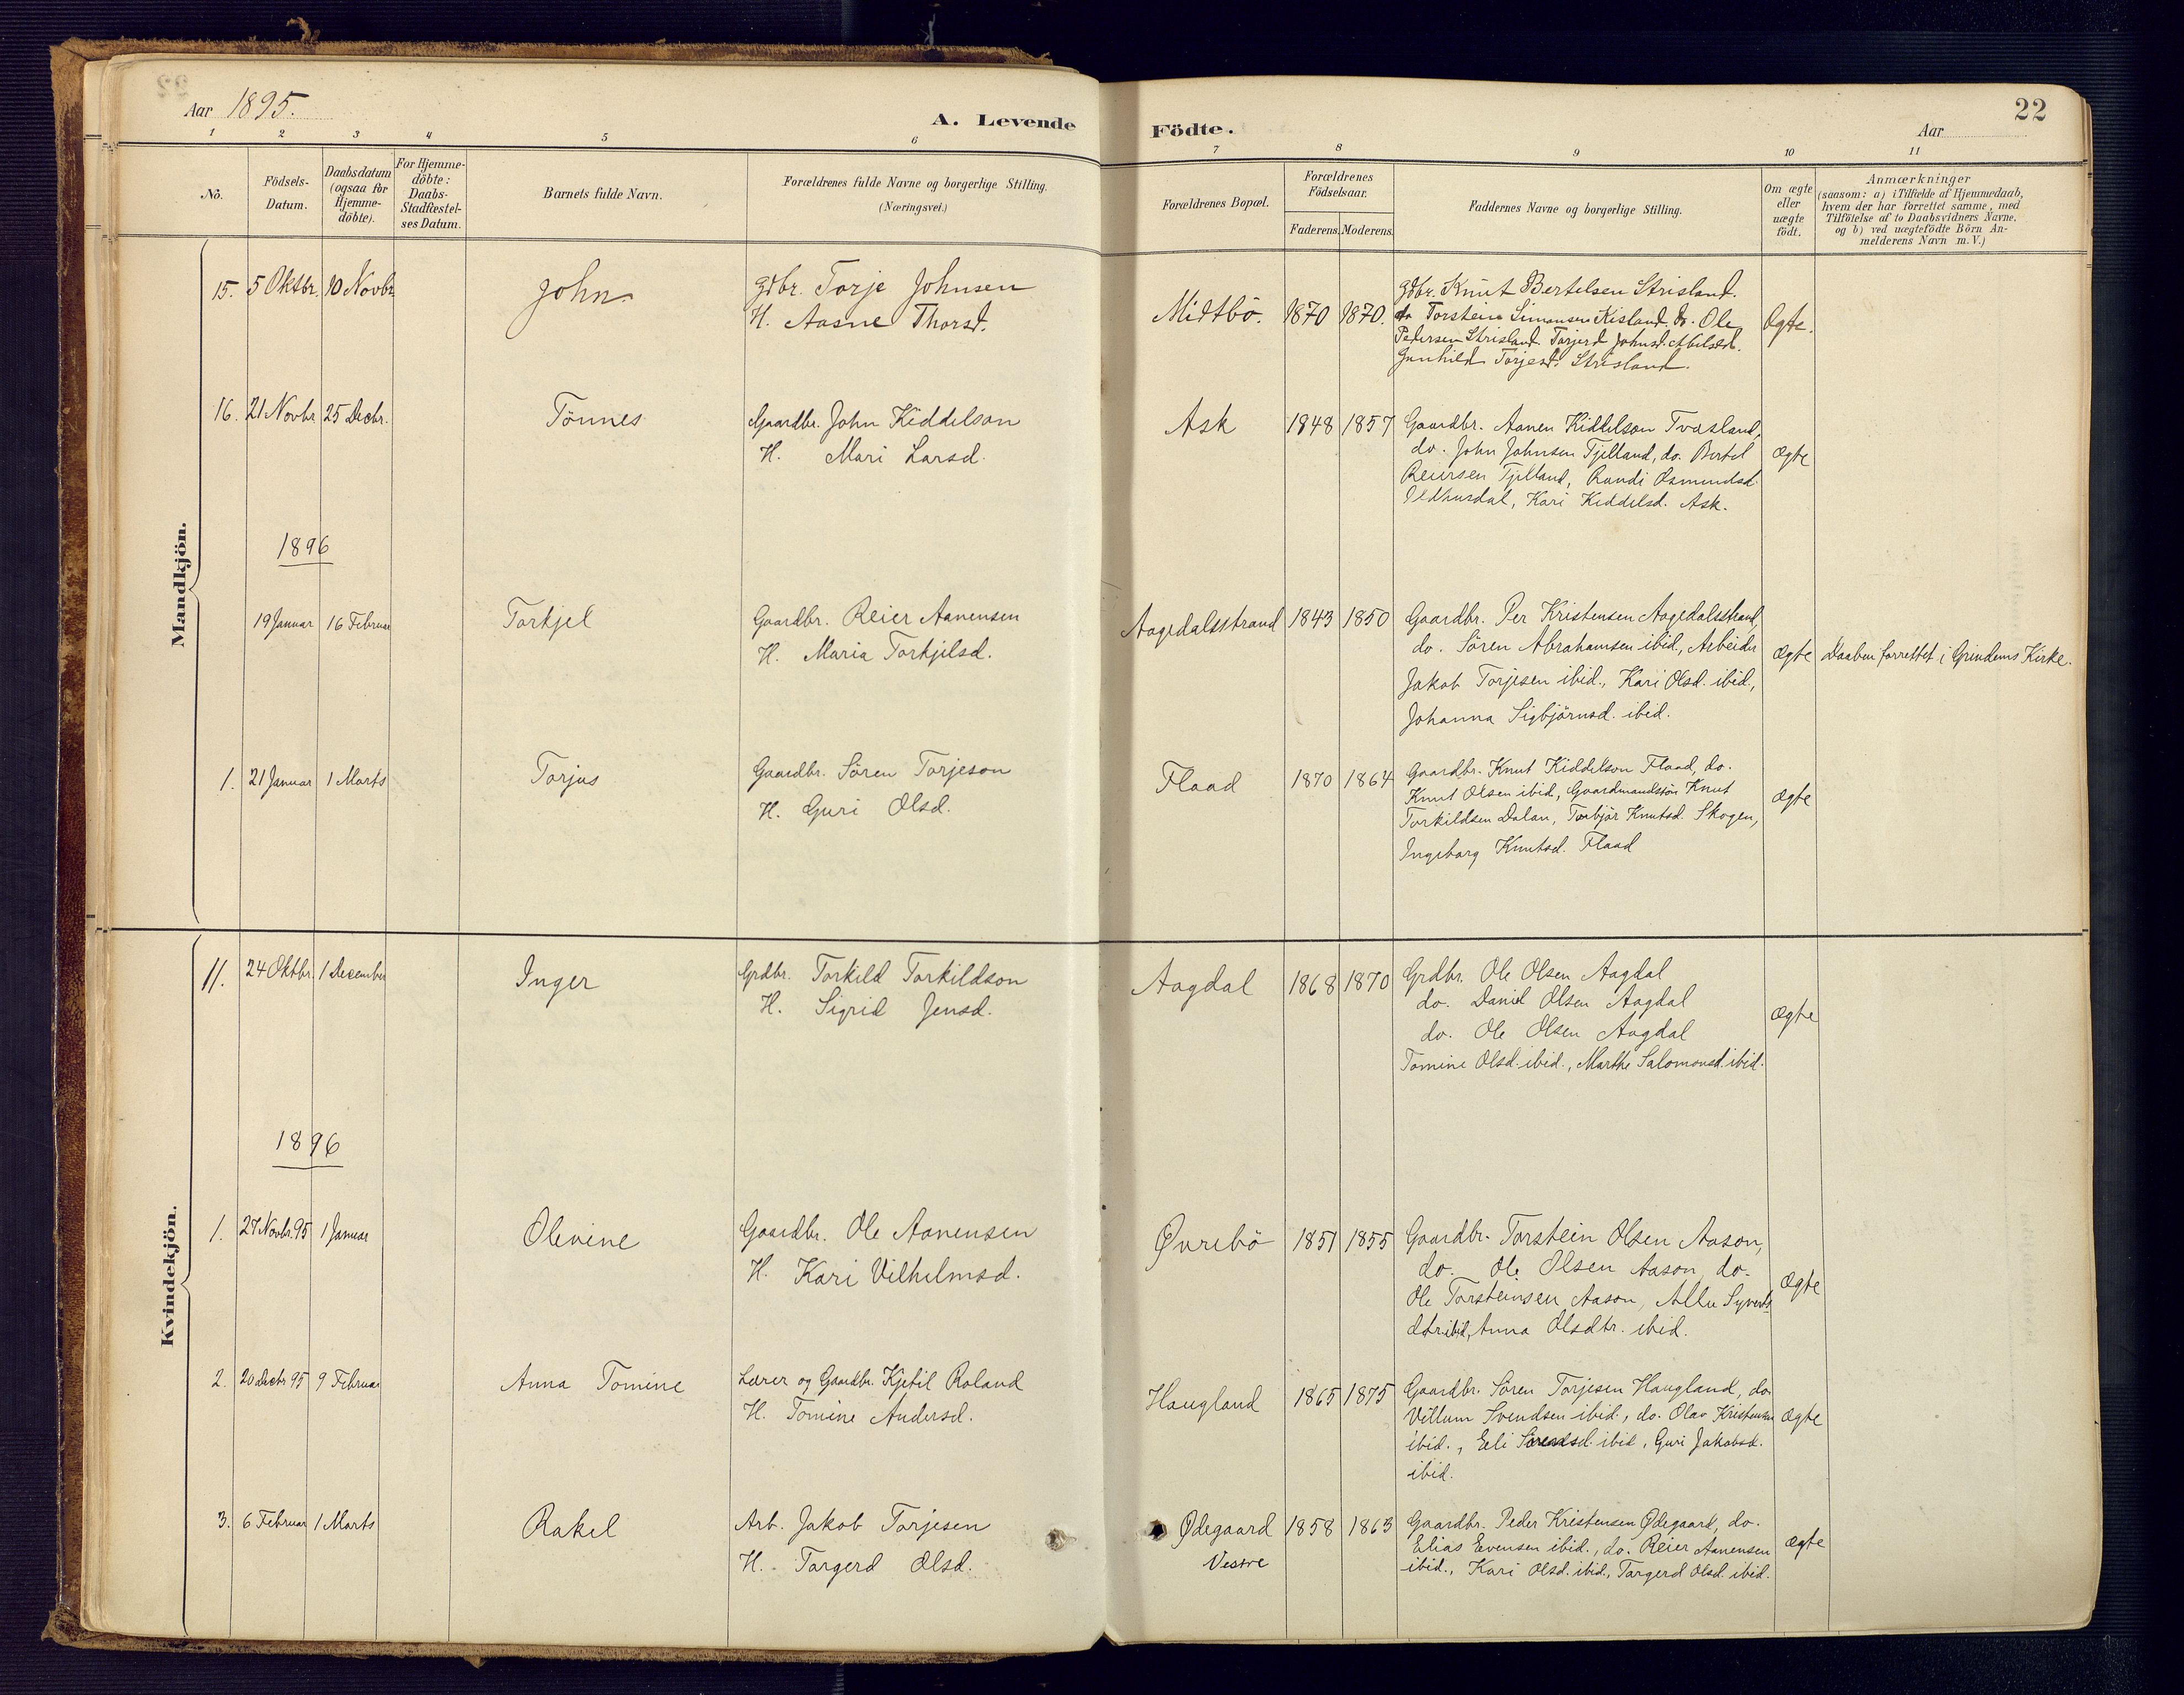 Aar 1895.
A. Levende Födte.
Aar
22
1 2 3 4 5 6 7 8 9 10 11
No.
Födsels-
Datum.
Daabsdatum
(ogsaa for
Hjemme-
döbte).
For Hjemme-
döbte:
Daabs-
Stadfæstel-
ses Datum.
Barnets fulde Navn.
Forældrenes fulde Navne og borgerlige Stilling.
(Næringsvei.)
Forældrenes Bopæl.
Forældrenes
Födselsaar.
Faderens. Moderens.
Faddernes Navne og borgerlige Stilling.
Om ægte
eller
uægte
födt.
Anmærkninger
(saasom: a) i Tilfælde af Hjemmedaab,
hvem der har forrettet samme, med
Tilföielse af to Daabsvidners Navne.
og b) ved uægtefödte Börn An-
melderens Navn m. V.)
Mandkjön.
15. 5 Oktbr. 10 Novbr.
John
Gdbr. Torje Johnsen
H. Aasne Thorsd.
Midtbö. 1870 1870.
Gdbr. Knut Bertelsen Strisland.
do Torstein Simonsen Kisland, do. Ole
Pedersen Strisland. Torjerd Johnsd.
Gunhild Torjesd. Strisland.
Ægte.
16. 21 Novbr. 25 Decbr.
Tönnes
Gaardbr. John Kiddelson
H. Mari Larsd.
Ask 1848 1857
Gaardbr. Aanen Kiddelson Tvasland,
do. John Johnsen Tjelland, do. Bertel
Reiersen Tjelland, Randi Osmundsd.
Ildhusdal, Kari Kiddelsd. Ask.
Ægte
1896
19 Januar 16 Februar
Torkjel
Gaardbr. Reier Aanensen
H. Maria Torkjilsd.
Aagedalsstrand 1843 1850
Gaardbr. Per Kristensen Aagedalsstrand,
do. Sören Abrahamsen ibid., Arbeider
Jakob Torjesen ibid., Kari Olsd. ibid.,
Johanna Sigbjörnsd. ibid.
Ægte
Daaben forrettet i Grindems Kirke.
1. 21 Januar 1 Marts
Torjus
Gaardbr. Sören Torjeson
H. Guri Olsd.
Flaad 1870 1864
Gaardbr. Knut Kiddelson Flaad, do.
Knut Olsen ibid., Gaardmandsön Knut
Torkildsen Dalan, Torbjör Knutsd. Skogen,
Ingeborg Knutsd. Flaad
Ægte
Kvindekjön.
11. 24 Oktbr. 1 December
Inger
Grdbr. Torkild Torkildson
H. Sigrid Jensd.
Aagdal 1868 1870
Grdbr. Ole Olsen Aagdal
do. Daniel Olsen Aagdal
do. Ole Olsen Aagdal
Tomine Olsd. ibid., Marthe Salomonsd. ibid.
Ægte
1896
1. 27 Novbr. 95 1 Januar
Olevine
Gaardbr. Ole Aanensen
H. Kari Vilhelmsd.
Øvrebö 1851 1855
Gaardbr. Torstein Olsen Aason,
do. Ole Olsen Aason, do.
Ole Torsteinsen Aason,
dtr. ibid, Anna Olsdtr. ibid.
Ægte
2. 20 Decbr 95 9 Februar
Anna Tomine
Lærer og Gaardbr. Kjetil Roland
H. Tomine Andersd.
Haugland 1865 1875
Gaardbr. Sören Torjesen Haugland, do.
Villum Svendsen ibid., do. Olav Kristensen
ibid., Eli ibid, Guri Jakobsd.
ibid.
Ægte
3. 6 Februar 1 Marts
Rakel
Arb. Jakob Torjesen
H. Torgerd Olsd.
Ødegaard 1858 1863
Vestre
Gaardbr. Peder Kristensen Ødegaard, do.
Elias Evensen ibid., do. Reier Aanensen
ibid., Kari Olsd. ibid., Torgerd Olsd. ibid.
Ægte